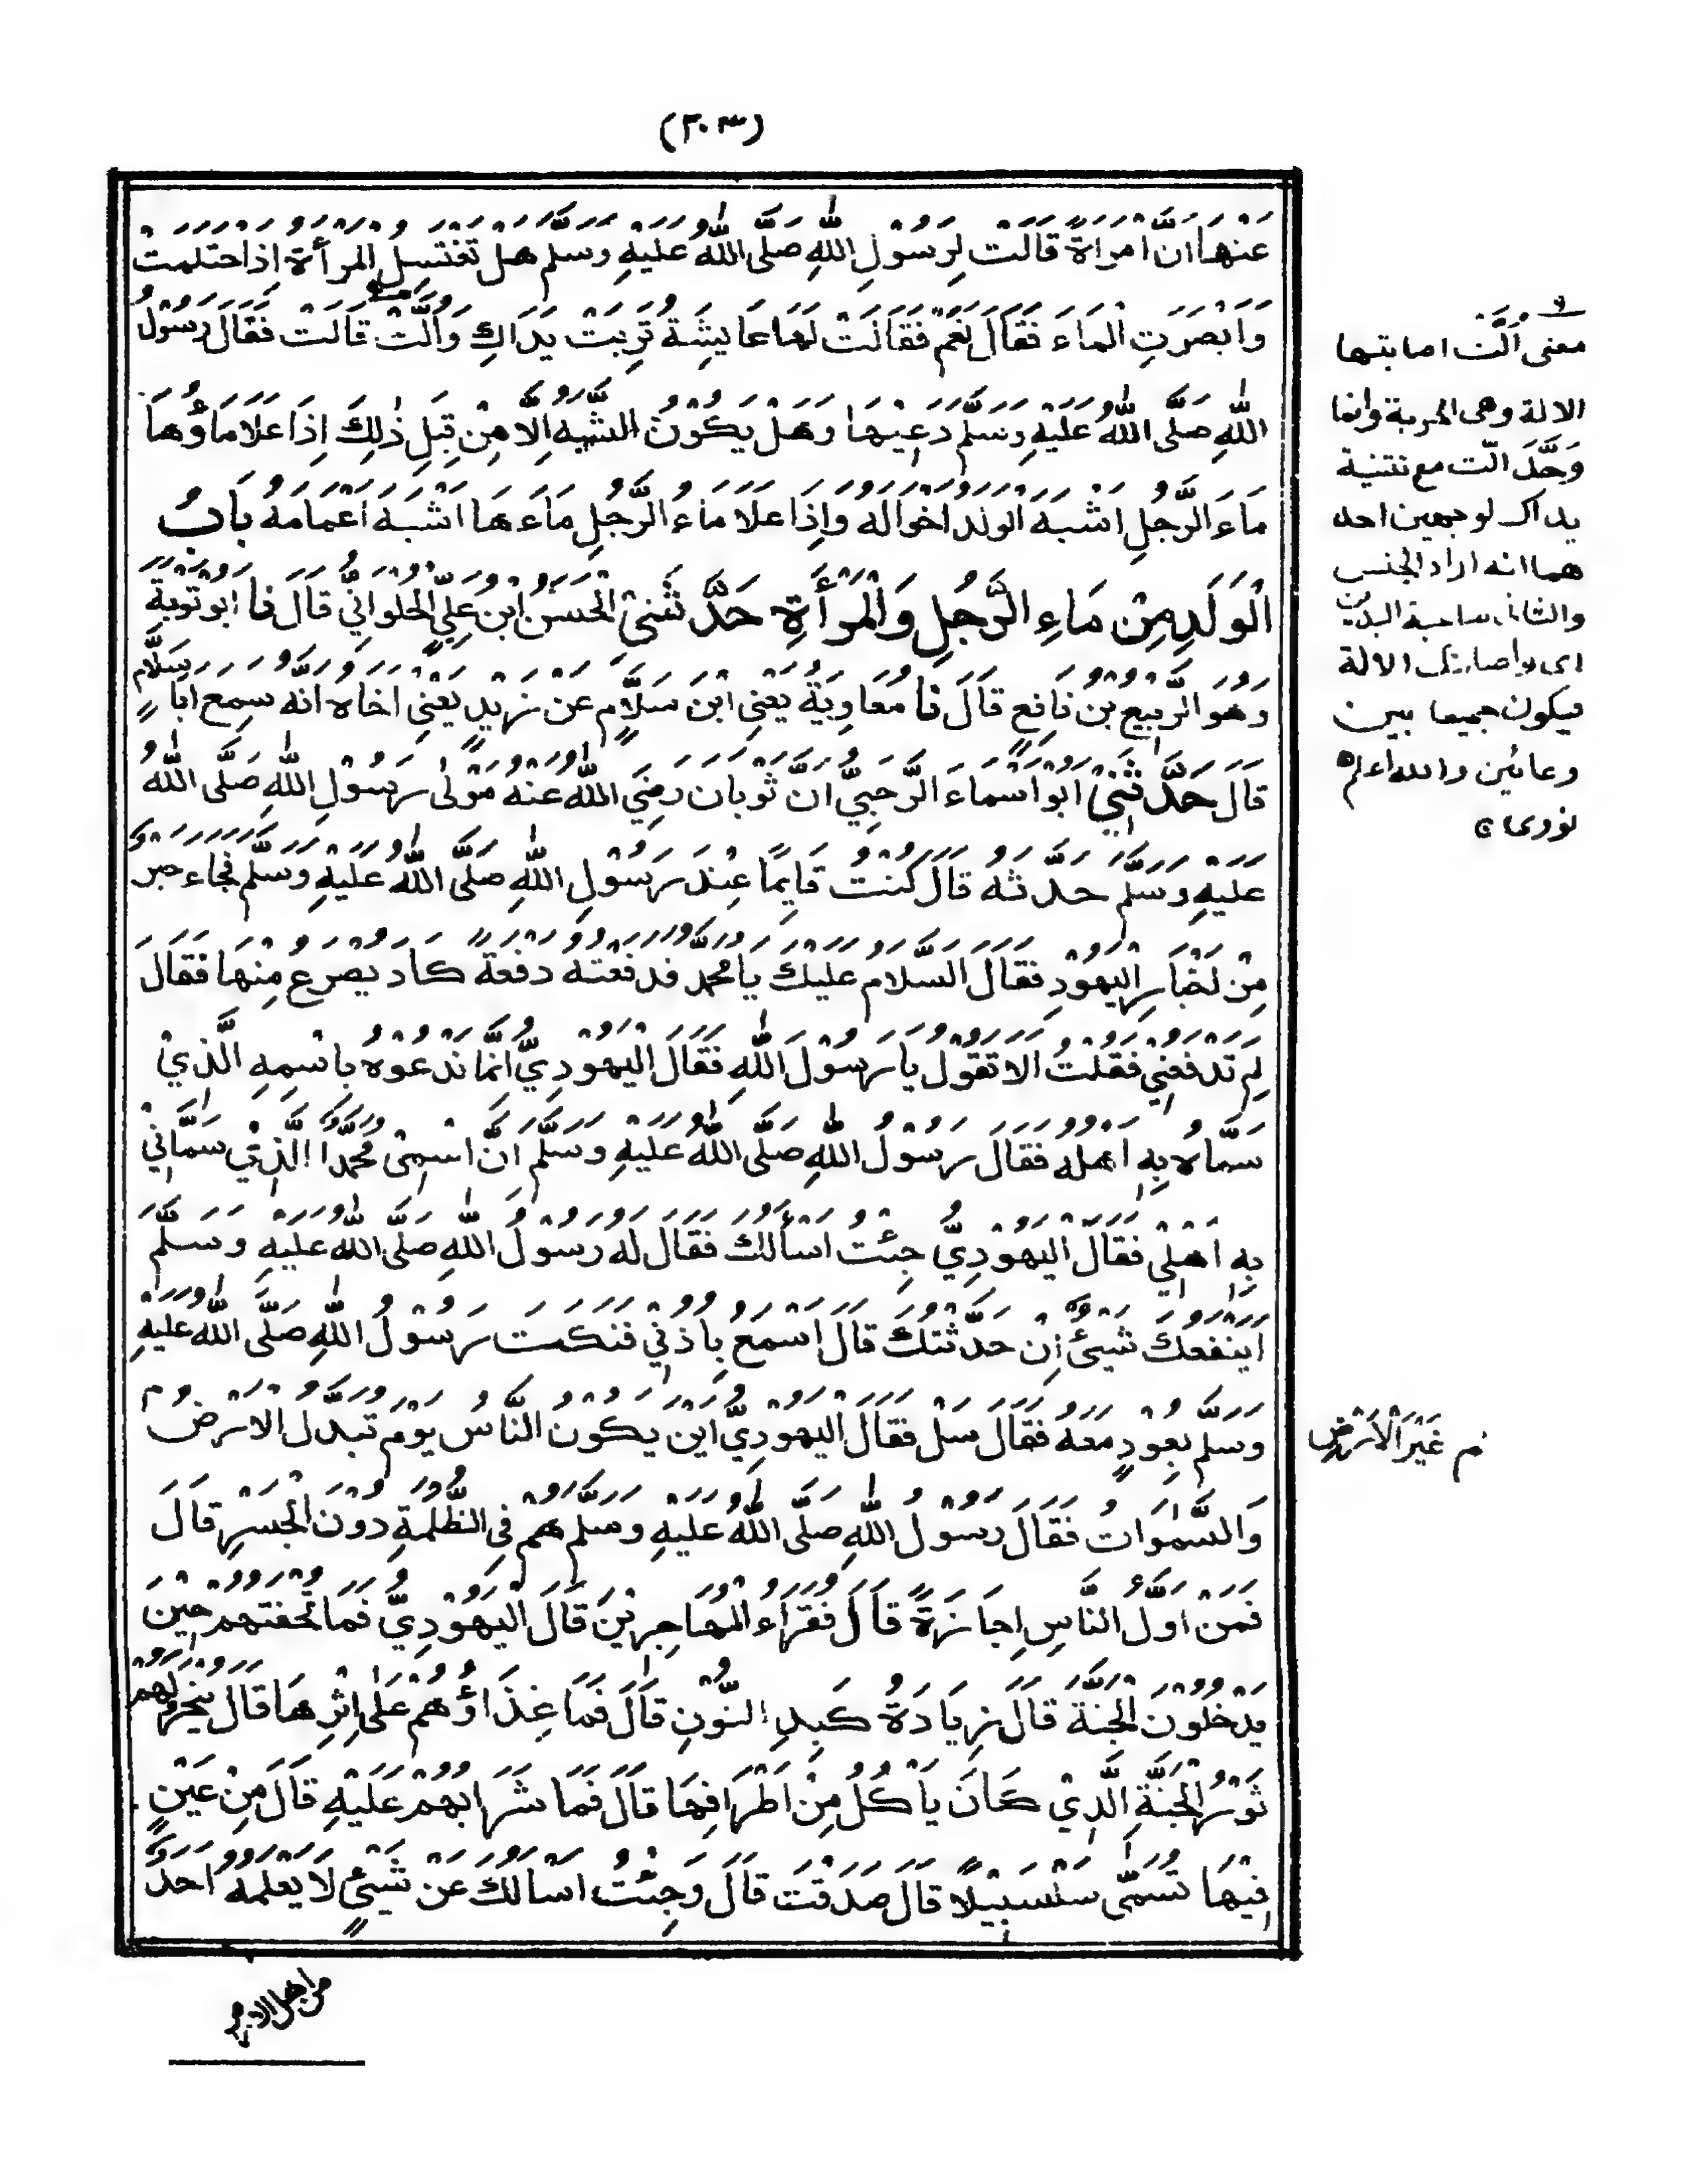 (٣٠٣)
عَنْهَا اَنَّ امْرَاَةً قَالَتْ لِرَسُوْلِ اللّٰهِ صَلَّى اللّٰهُ عَلَيْهِ وَسَلَّمَ هَلْ تَغْتَسِلُ الْمَرْأَةُ اِذَا احْتَلَمَتْ
وَاَبْصَرَتِ الْمَاءَ فَقَالَ نَعَمْ فَقَالَتْ لَهَا عَايِشَةُ تَرِبَتْ يَدَاكِ وَاُلَّتْ قَالَتْ فَقَالَ رَسُوْلُ
اللّٰهِ صَلَّى اللّٰهُ عَلَيْهِ وَسَلَّمَ دَعِيْهَا وَهَلْ يَكُوْنُ الشَّبَهُ اِلَّا مِنْ قِبَلِ ذٰلِكَ اِذَا عَلَا مَاؤُهَا
مَاءَ الرَّجُلِ اَشْبَهَ الْوَلَدُ اَخْوَالَهُ وَاِذَا عَلَا مَاءُ الرَّجُلِ مَاءَهَا اَشْبَهَ اَعْمَامَهُ بَابُ
الْوَلَدِ مِنْ مَاءِ الرَّجُلِ وَالْمَرْأَةِ حَدَّثَنِى الْحَسَنُ ابْنُ عَلِيٍّ الْحُلْوَانِيُّ قَالَ نَا اَبُوْ تَوْبَةَ
وَهُوَ الرَّبِيْعُ بْنُ نَافِعٍ قَالَ نَا مُعَاوِيَةُ يَعْنِى ابْنَ سَلَّامٍ عَنْ زَيْدٍ يَعْنِى اَخَاهُ اَنَّهُ سَمِعَ اَبَا سَلَّامٍ
قَالَ حَدَّثَنِىْ اَبُوْ اَسْمَاءَ الرَّحَبِيُّ اَنَّ ثَوْبَانَ رَضِيَ اللّٰهُ عَنْهُ مَوْلٰى رَسُوْلِ اللّٰهِ صَلَّى اللّٰهُ
عَلَيْهِ وَسَلَّمَ حَدَّثَهُ قَالَ كُنْتُ قَايِمًا عِنْدَ رَسُوْلِ اللّٰهِ صَلَّى اللّٰهُ عَلَيْهِ وَسَلَّمَ فَجَاءَ حَبْرٌ
مِنْ اَحْبَارِ الْيَهُوْدِ فَقَالَ السَّلَامُ عَلَيْكَ يَا مُحَمَّدُ فَدَفَعْتُهُ دَفْعَةً كَادَ يُصْرَعُ مِنْهَا فَقَالَ
لِمَ تَدْفَعُنِيْ فَقُلْتُ اَلَا تَقُوْلُ يَا رَسُوْلَ اللّٰهِ فَقَالَ الْيَهُوْدِيُّ اِنَّمَا نَدْعُوْهُ بِاسْمِهِ الَّذِيْ
سَمَّاهُ بِهِ اَهْلُهُ فَقَالَ رَسُوْلُ اللّٰهِ صَلَّى اللّٰهُ عَلَيْهِ وَسَلَّمَ اِنَّ اسْمِىْ مُحَمَّدًا الَّذِيْ سَمَّانِيْ
بِهِ اَهْلِيْ فَقَالَ الْيَهُوْدِيُّ جِئْتُ اَسْأَلُكَ فَقَالَ لَهُ رَسُوْلُ اللّٰهِ صَلَّى اللّٰهُ عَلَيْهِ وَسَلَّمَ
اَيَنْفَعُكَ شَيْئٌ اِنْ حَدَّثْتُكَ قَالَ اَسْمَعُ بِاُذُنِيْ فَنَكَتَ رَسُوْلُ اللّٰهِ صَلَّى اللّٰهُ عَلَيْهِ
وَسَلَّمَ بِعُوْدٍ مَعَهُ فَقَالَ سَلْ فَقَالَ الْيَهُوْدِيُّ اَيْنَ يَكُوْنُ النَّاسُ يَوْمَ تُبَدَّلُ الْاَرْضُ
وَالسَّمٰوَاتُ فَقَالَ رَسُوْلُ اللّٰهِ صَلَّى اللّٰهُ عَلَيْهِ وَسَلَّمَ هُمْ فِى الظُّلْمَةِ دُوْنَ الْجَسْرِ قَالَ
فَمَنْ اَوَّلُ النَّاسِ اِجَازَةً قَالَ فُقَرَاءُ الْمُهَاجِرِيْنَ قَالَ الْيَهُوْدِيُّ فَمَا تُحْفَتُهُمْ حِيْنَ
يَدْخُلُوْنَ الْجَنَّةَ قَالَ زِيَادَةُ كَبِدِ النُّوْنِ قَالَ فَمَا غِذَاؤُهُمْ عَلٰى اِثْرِهَا قَالَ يُنْحَرُ لَهُمْ
ثَوْرُ الْجَنَّةِ الَّذِيْ كَانَ يَاْكُلُ مِنْ اَطْرَافِهَا قَالَ فَمَا شَرَابُهُمْ عَلَيْهِ قَالَ مِنْ عَيْنٍ
فِيْهَا تُسَمّٰى سَلْسَبِيْلًا قَالَ صَدَقْتَ قَالَ وَجِئْتُ اَسْاَلُكَ عَنْ شَيْئٍ لَا يَعْلَمُهُ اَحَدٌ
معنى اُلَّت اصابتها
الالة وهى الحربة وانما
وَحَّدَ الّت مع تثنية
يداك لوجهين احد
هما انه اراد الجنس
والثانى صاحبة اليدين
اى واصابتك الالة
فيكون جميعا بين
دعائين والله اعلم
نووى
م غَيْرَ الْاَرْضِ
من اهل الارض